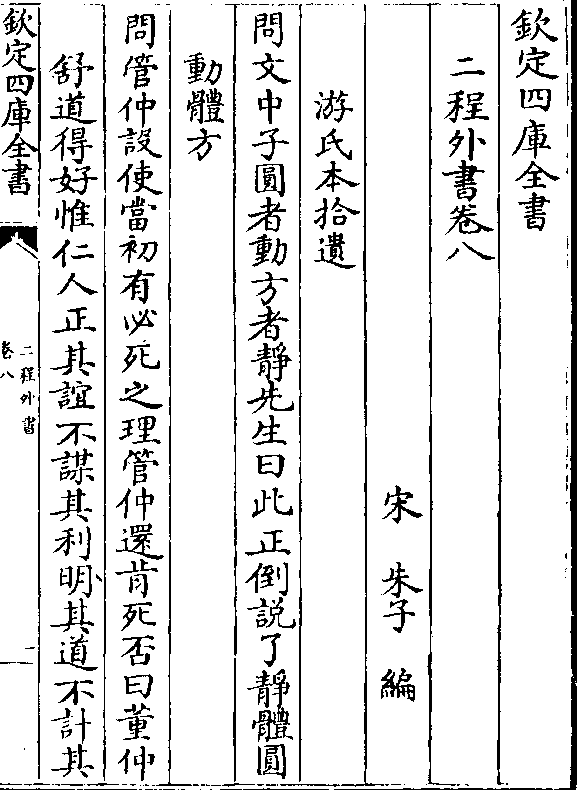 欽定四庫全書
二程外書卷八
宋 朱子 編
游氏本拾遺
問文中子圓者動方者靜先生曰此正倒説了靜體圓
動體方
問管仲設使當初有必死之理管仲還肯死否曰董仲
舒道得好惟仁人正其誼不謀其利明其道不計其
欽定四庫全書
二程外書
卷八
一